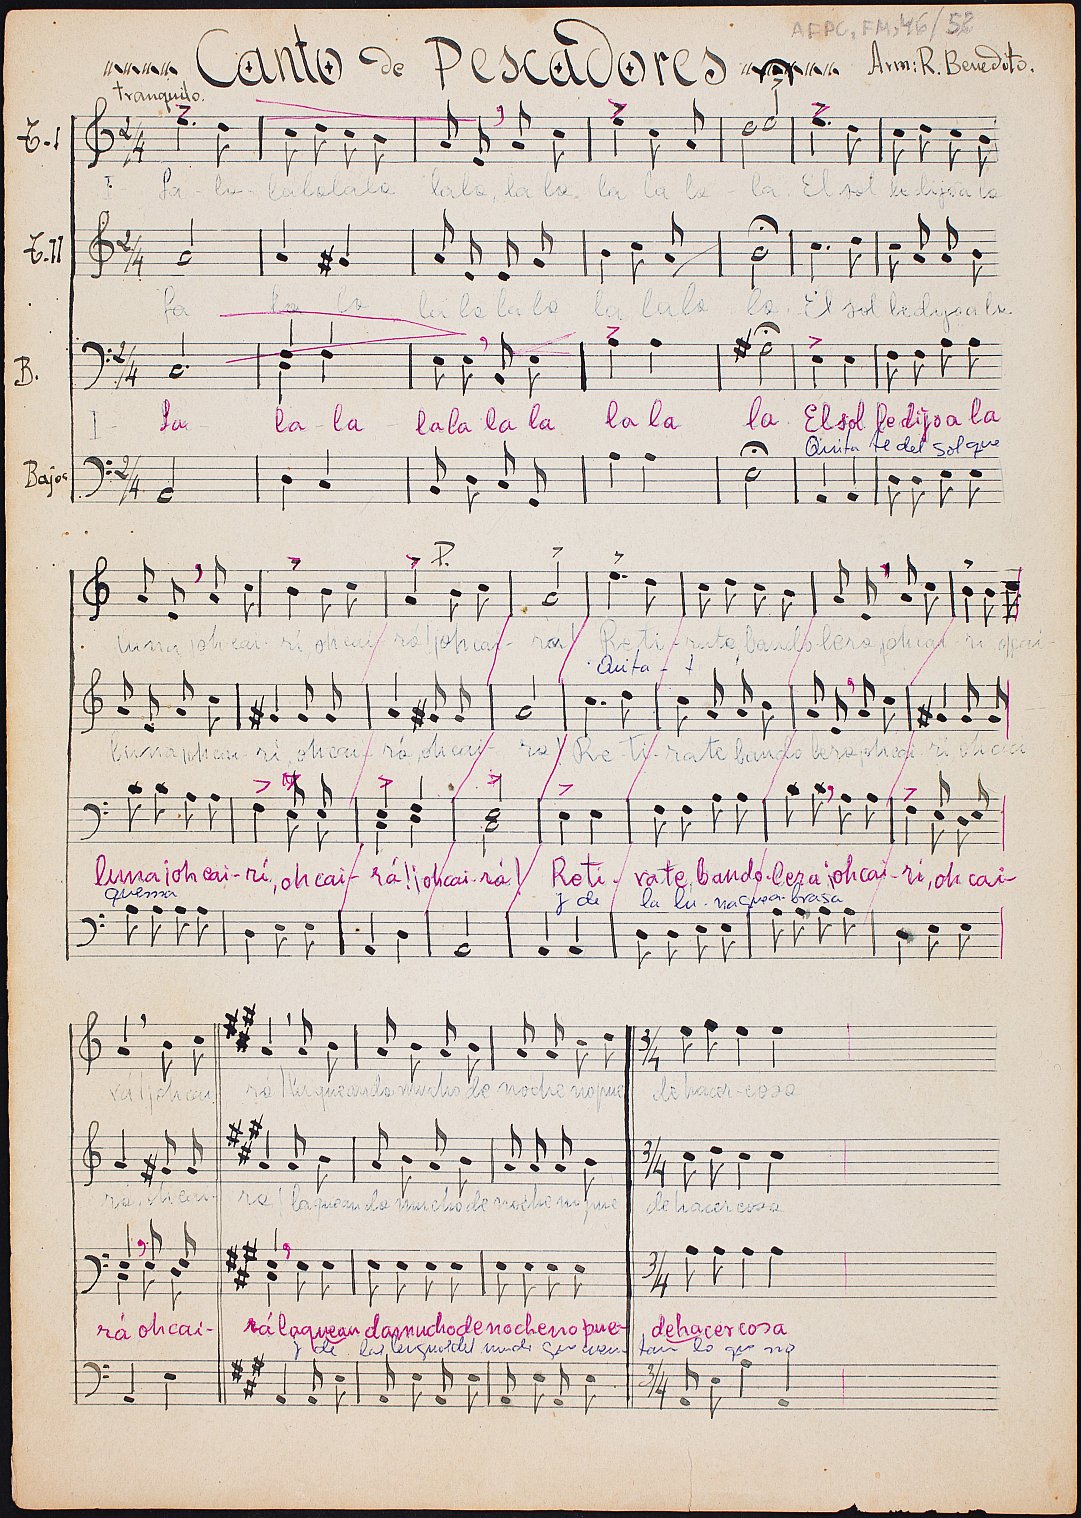 AFPC, FM, 46/52
Canto de Pescadores
Arm: R. Benedito.
tranquilo.
T-I
2/4
I- La - la - la la la la la la, la la. la la la - la. El sol le dijo a la
T-II
2/4
La la la la la la la la la la la. El sol le dijo a la
B.
2/4
I- La - la - la - la la la la la la la El sol le dijo a la
Quita te del sol que
Bajos
2/4
P.
luna ¡oh cai - ri, oh cai - rá! ¡oh cai - rá! Re ti - rate, bandolera, ¡oh cai - ri oh cai -
Quita - t
luna ¡oh cai - ri, oh cai - rá, oh cai - rá! Re - ti - rate bandolera, oh cai ri, oh cai
luna ¡oh cai - ri, oh cai - rá! ¡oh cai - rá! Reti - rate, bando - lera, ¡oh cai - ri, oh cai -
quema
y de la lu - na brasa
rá! ¡oh cai rá! la que anda mucho de noche no pue de hacer cosa
3/4
rá, oh cai - rá! la que anda mucho de noche no pue de hacer cosa
3/4
rá oh cai - rá la que anda mucho de noche no pue - de hacer cosa
3/4
y de las lenguas del mundo que lo que no
3/4